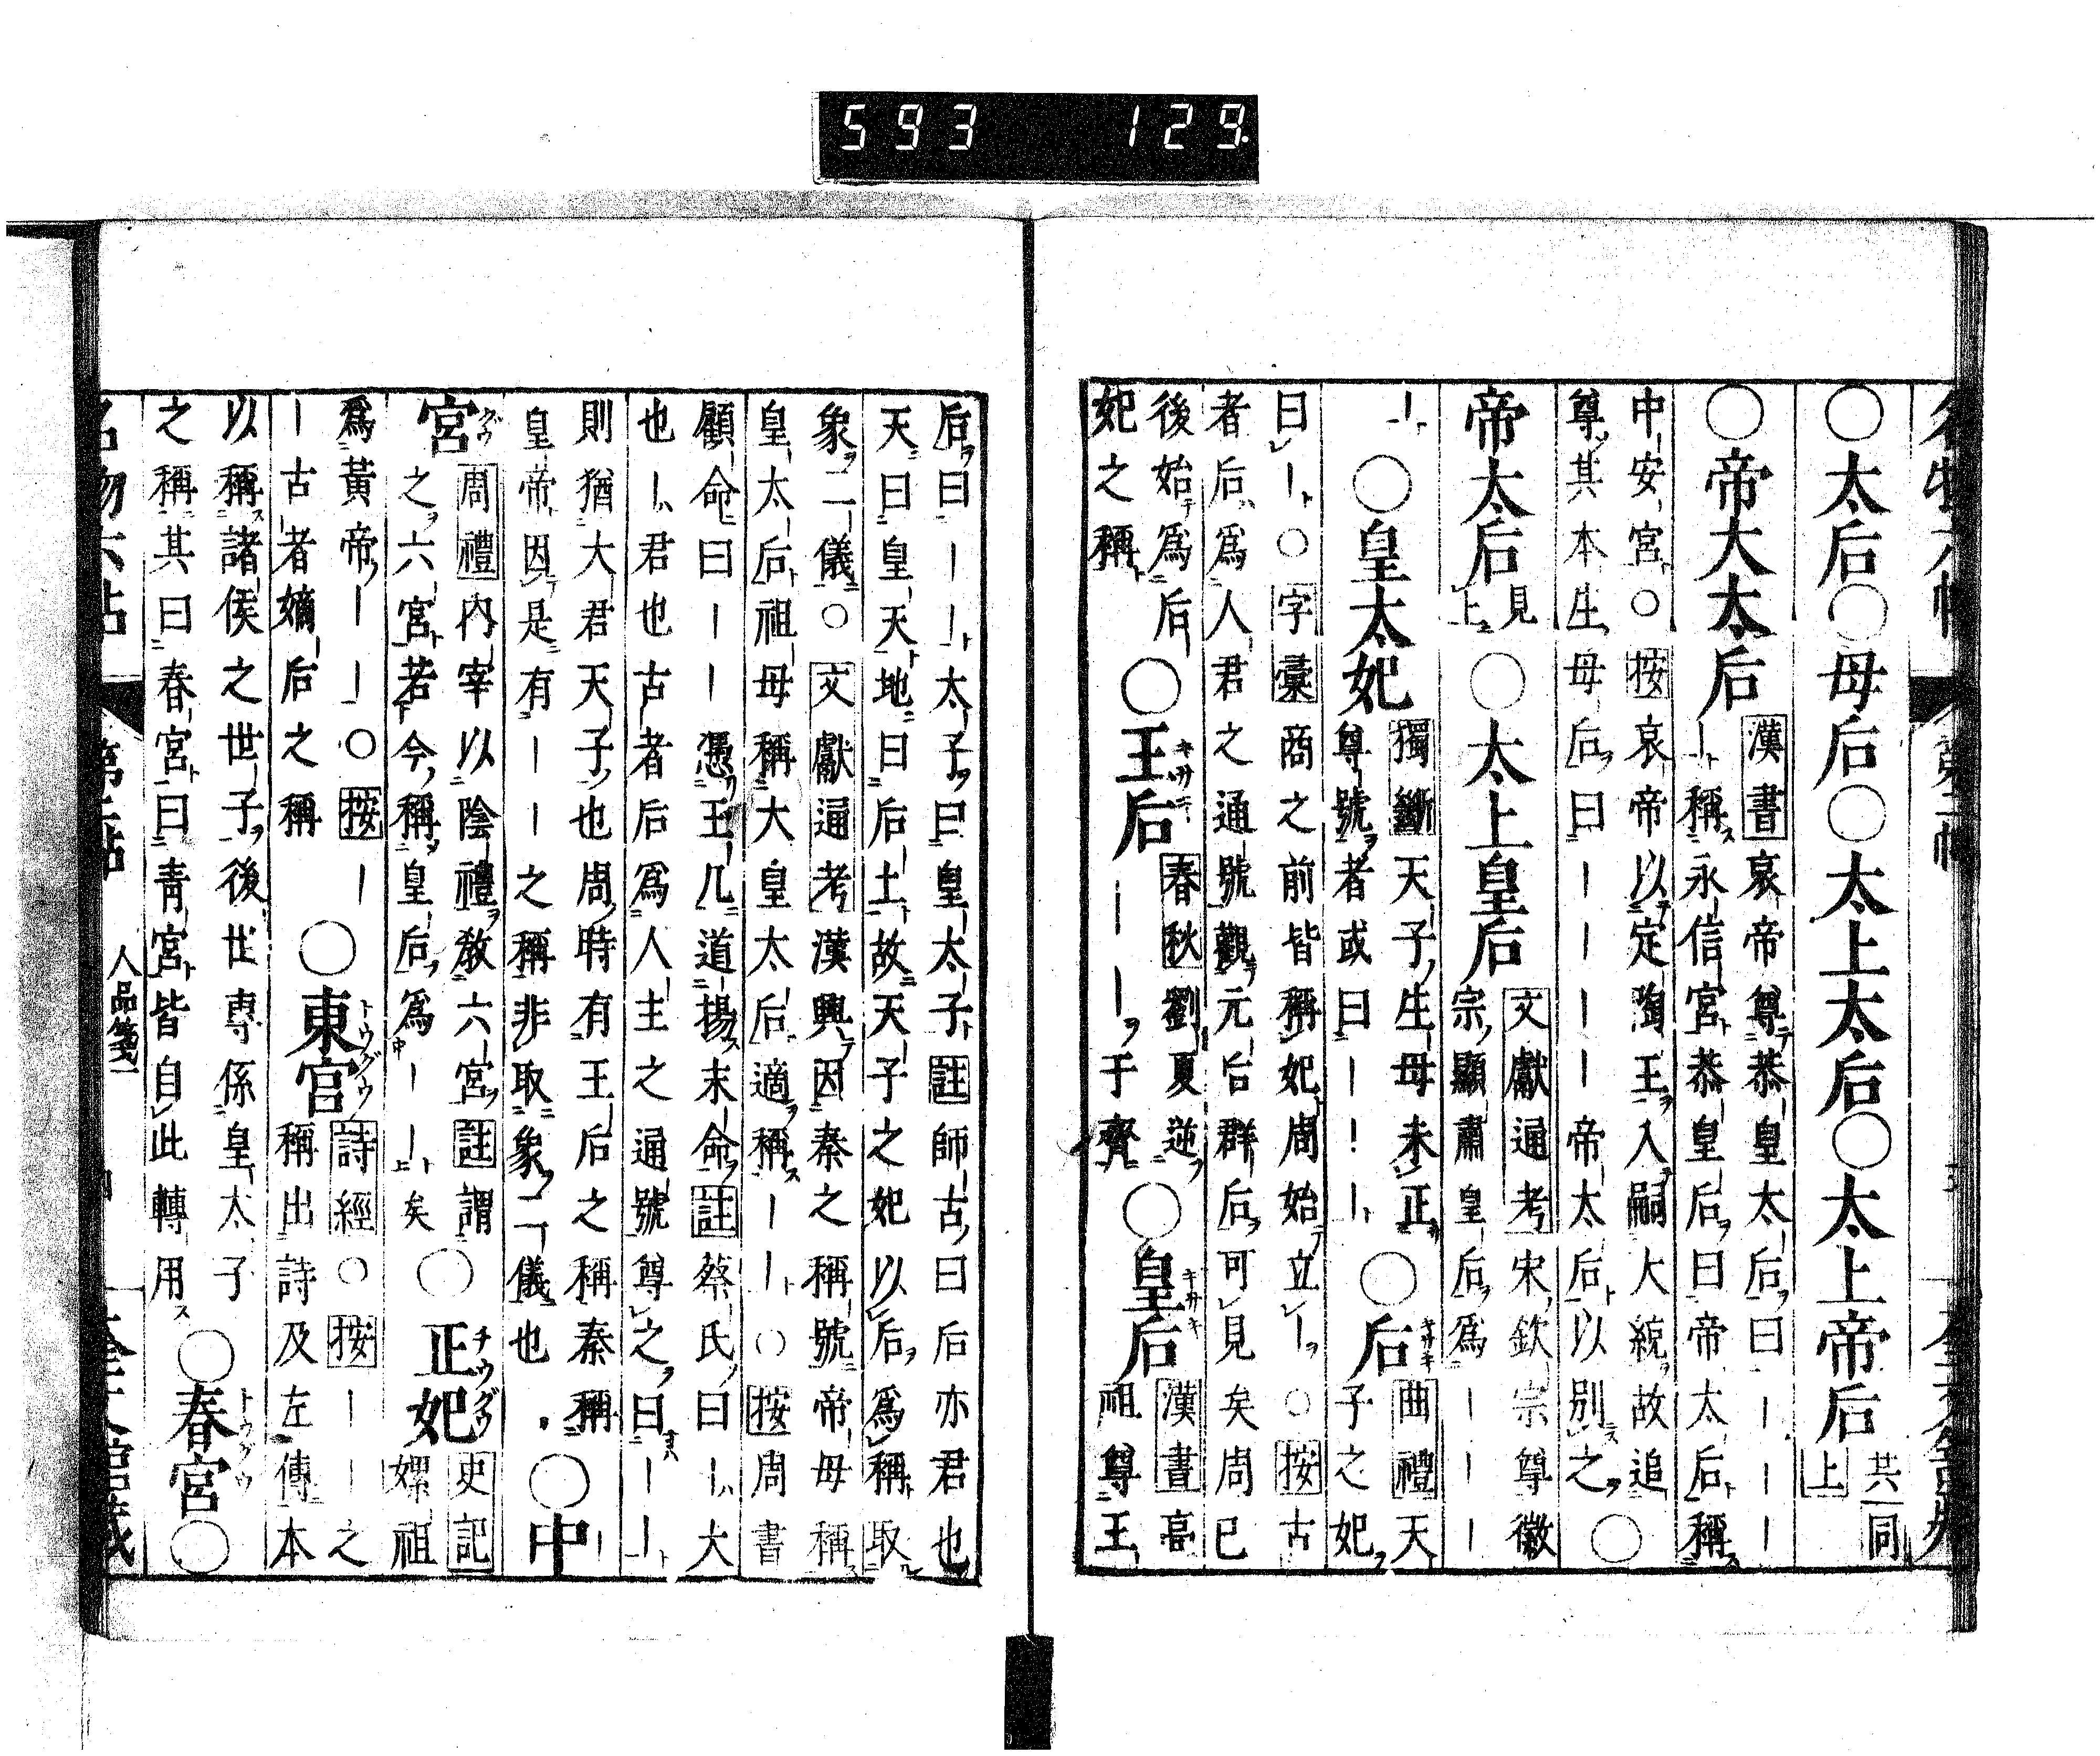 593 129
○太后○母后○太上太后○太上帝后 共同上
○帝大太后 漢書哀帝尊恭皇太后曰ーーー
ー稱永信宮恭皇后曰帝太后稱
中安宮○按哀帝以定陶王入嗣大統故追
尊其本生母后曰ーーーー帝太后以別之 ○
帝太后 見上 ○太上皇后 文獻通考宋欽宗尊徽
宗顯肅皇后爲ーーー
ー ○皇太妃 獨斷天子生母未正
尊號者或曰ーーー ○后 曲禮天
子之妃
曰ー○字彙商之前皆稱妃周始立ー○按古
者后爲人君之通號觀元后群后可見矣周已
後始爲后 ○王后 春秋劉夏逆
妃之稱 ーーー于齊 ○皇后 漢書高
祖尊王
后曰ーー太子曰皇太子註師古曰后亦君也
天曰皇天地曰后土故天子之妃以后爲稱取
象二儀○文獻通考漢興因秦之稱號帝母稱
皇太后祖母稱大皇太后適稱ーー○按周書
顧命曰ーー憑玉几道揚末命註蔡氏曰ー大
也ー君也古者后爲人主之通號尊之曰ーー
則猶大君天子也周時有王后之稱秦稱
皇帝因是有ーー之稱非取象二儀也 ○中
宮 周禮内宰以陰禮教六宮註謂
之六宮若今稱皇后爲中ーー矣 ○正妃 史記
嫘祖
爲黃帝ーー○按ー
ー古者嫡后之稱 ○東宮 詩經○按ーー之
稱出詩及左傳本
以稱諸侯之世子後世專係皇太子
之稱其曰春宮曰青宮皆自此轉用 ○春宮○
人品箋一